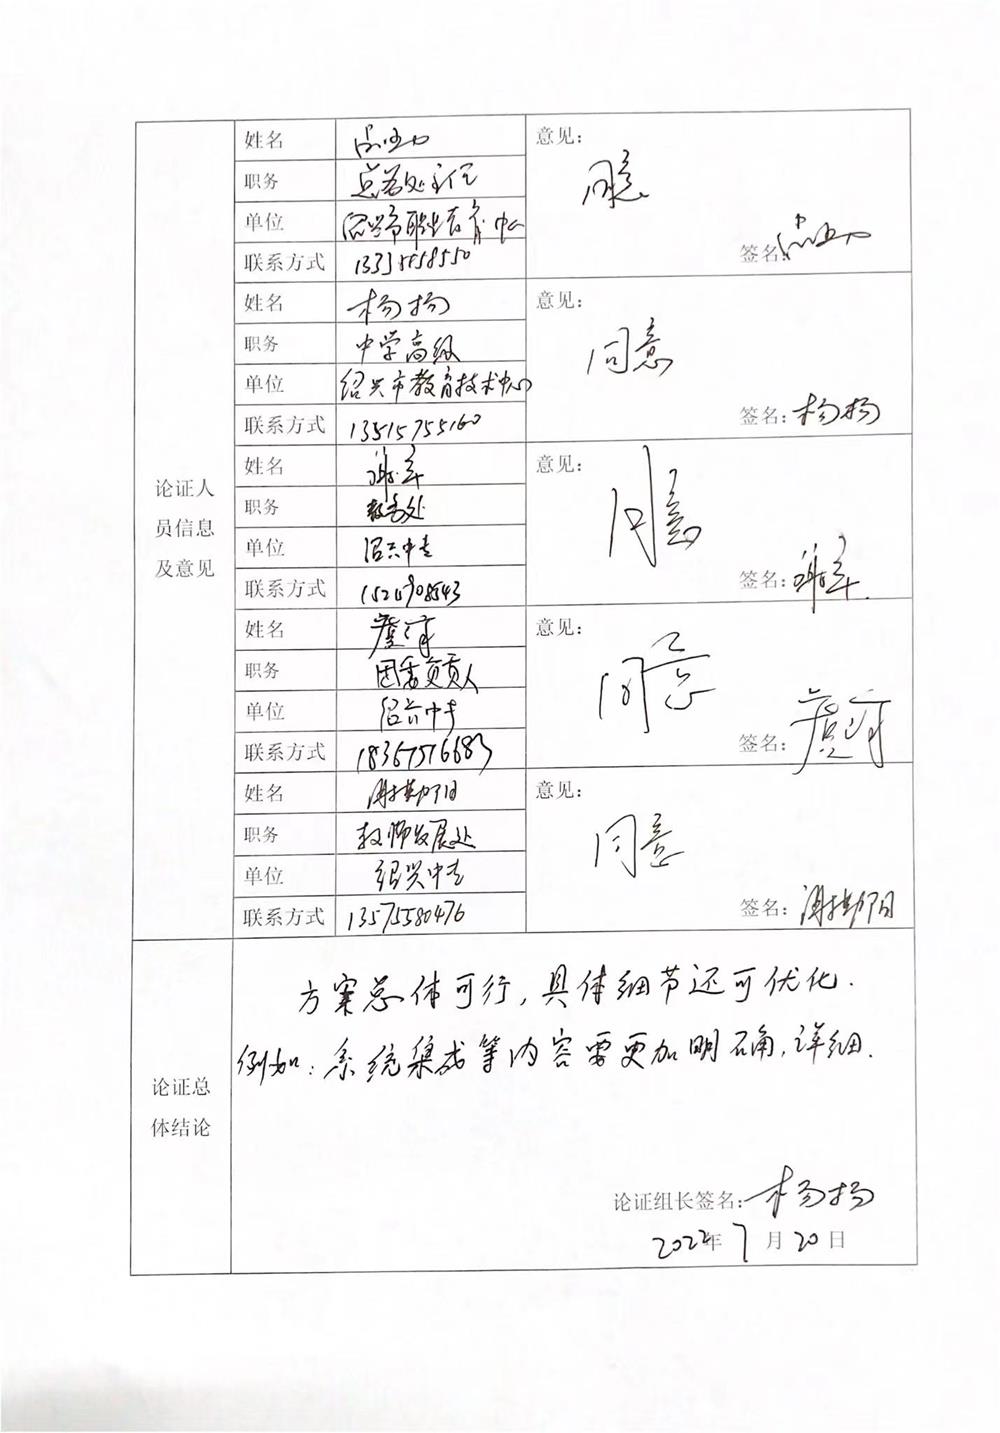 论证人
员信息
及意见
姓名
职务 总务处主任
单位 绍兴市职业教育中心
联系方式
意见：
同意
签名：
姓名 杨扬
职务 中学高级
单位 绍兴市教育技术中心
联系方式 13515755160
意见：
同意
签名：杨扬
姓名
职务 教务处
单位 绍兴中专
联系方式
意见：
同意
签名：
姓名
职务 团委负责人
单位 绍兴中专
联系方式 18367516683
意见：
同意
签名：
姓名 谢勤阳
职务 教师发展处
单位 绍兴中专
联系方式 13575580476
意见：
同意
签名：谢勤阳
论证总
体结论
方案总体可行，具体细节还可优化.
例如：系统集成等内容要更加明确，详细.
论证组长签名：杨扬
2022年7月20日